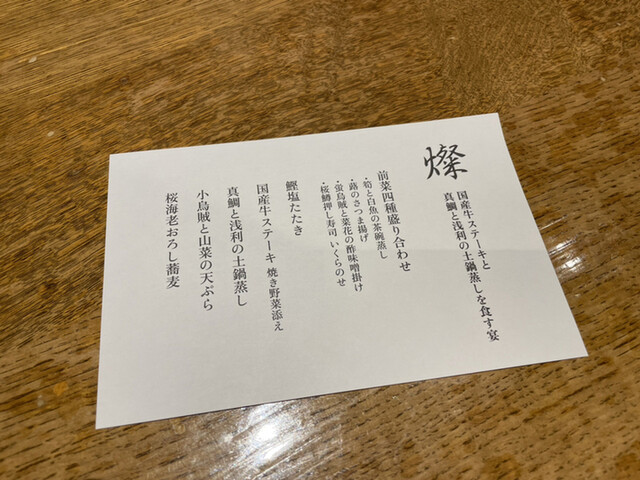 燦
国産牛ステーキと
真鯛と浅利の土鍋蒸しを食す宴
前菜四種盛り合わせ
・筍と白魚の茶碗蒸し
・蕗のさつま揚げ
・蛍烏賊と菜花の酢味噌掛け
・桜鱒押し寿司 いくらのせ
鰹塩たたき
国産牛ステーキ 焼き野菜添え
真鯛と浅利の土鍋蒸し
小烏賊と山菜の天ぷら
桜海老おろし蕎麦